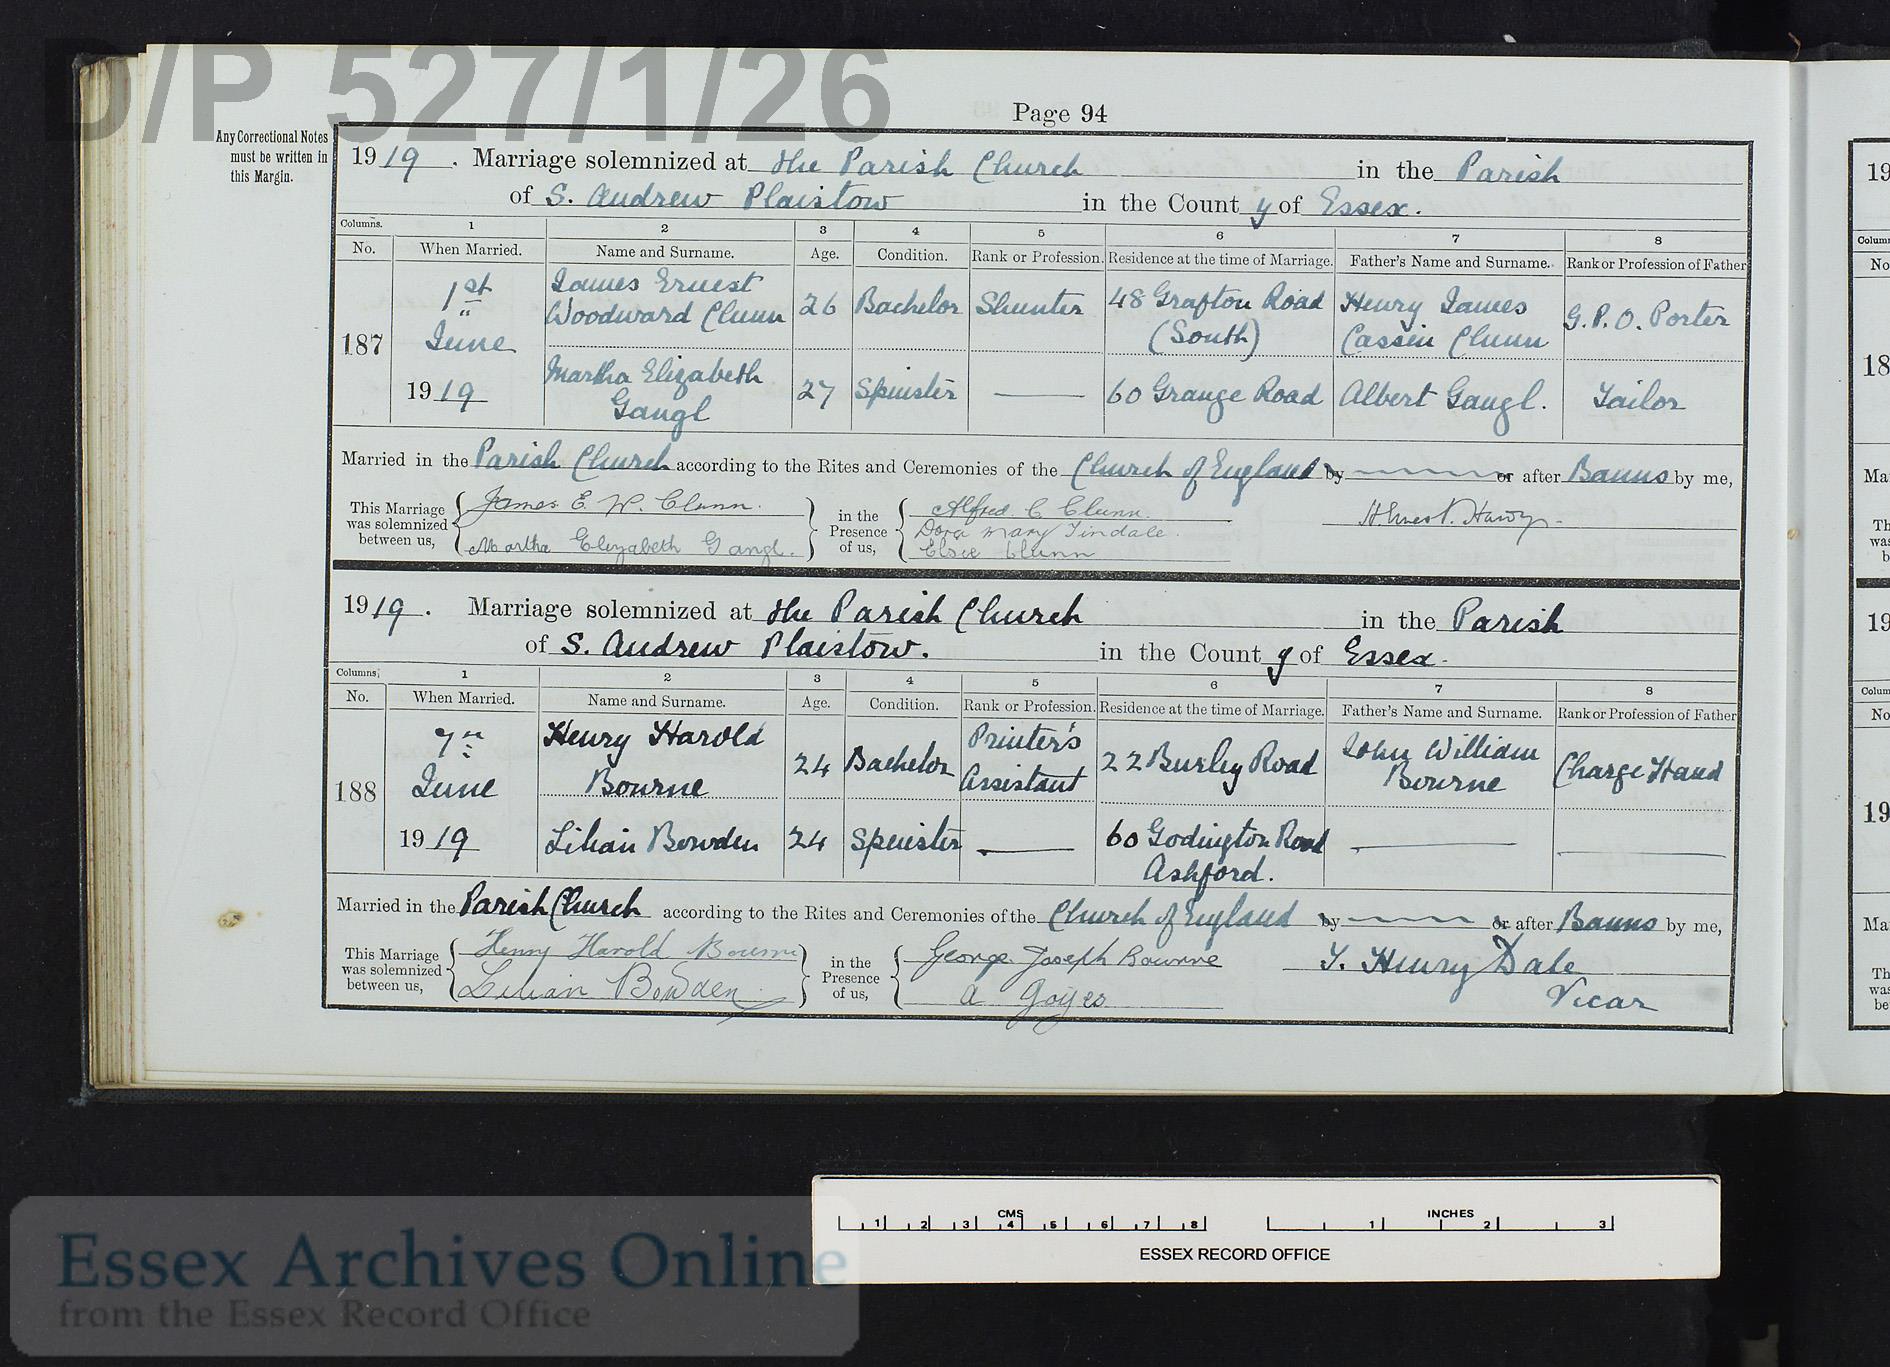 D/P 527/1/26
Page 94
Any Correctional Notes
must be written in
this Margin.
1919. Marriage solemnized at the Parish Church in the Parish
of S. Andrew Plaistow in the County of Essex.
Columns. 1 2 3 4 5 6 7 8
No. When Married. Name and Surname. Age. Condition. Rank or Profession. Residence at the time of Marriage. Father's Name and Surname. Rank or Profession of Father
187 1st June 1919 James Ernest Woodward Clunn 26 Bachelor Shunter 48 Grafton Road (South) Henry James Cassin Clunn G.P.O. Porter
Martha Elizabeth Gangl 27 Spinster — 60 Grange Road Albert Gangl. Tailor
Married in the Parish Church according to the Rites and Ceremonies of the Church of England by — or after Banns by me,
This Marriage was solemnized between us, James E. W. Clunn. Martha Elizabeth Gangl. in the Presence of us, Alfred C Clunn. Dora Mary Tindale. Elsie Clunn
1919. Marriage solemnized at the Parish Church in the Parish
of S. Andrew Plaistow. in the County of Essex.
Columns. 1 2 3 4 5 6 7 8
No. When Married. Name and Surname. Age. Condition. Rank or Profession. Residence at the time of Marriage. Father's Name and Surname. Rank or Profession of Father
188 7th June 1919 Henry Harold Bourne 24 Bachelor Printer's Assistant 22 Burley Road John William Bourne Charge Hand
Lilian Bowden 24 Spinster — 60 Godington Road Ashford. — —
Married in the Parish Church according to the Rites and Ceremonies of the Church of England by — or after Banns by me,
This Marriage was solemnized between us, Henry Harold Bourne Lilian Bowden in the Presence of us, George Joseph Bourne A T. Henry Dale Vicar
CMS 1 2 3 4 5 6 7 8 INCHES 1 2 3
ESSEX RECORD OFFICE
Essex Archives Online
from the Essex Record Office